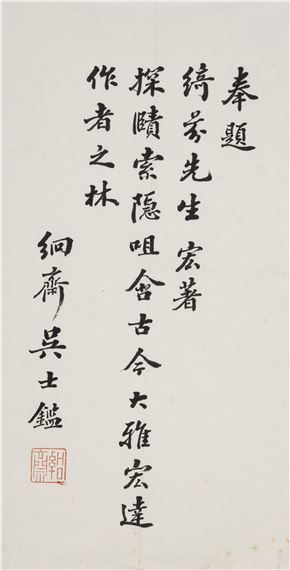 奉題
綺芬先生宏著
探賾索隱咀含古今大雅宏達
作者之林
絅齋吳士鑑
絅齋